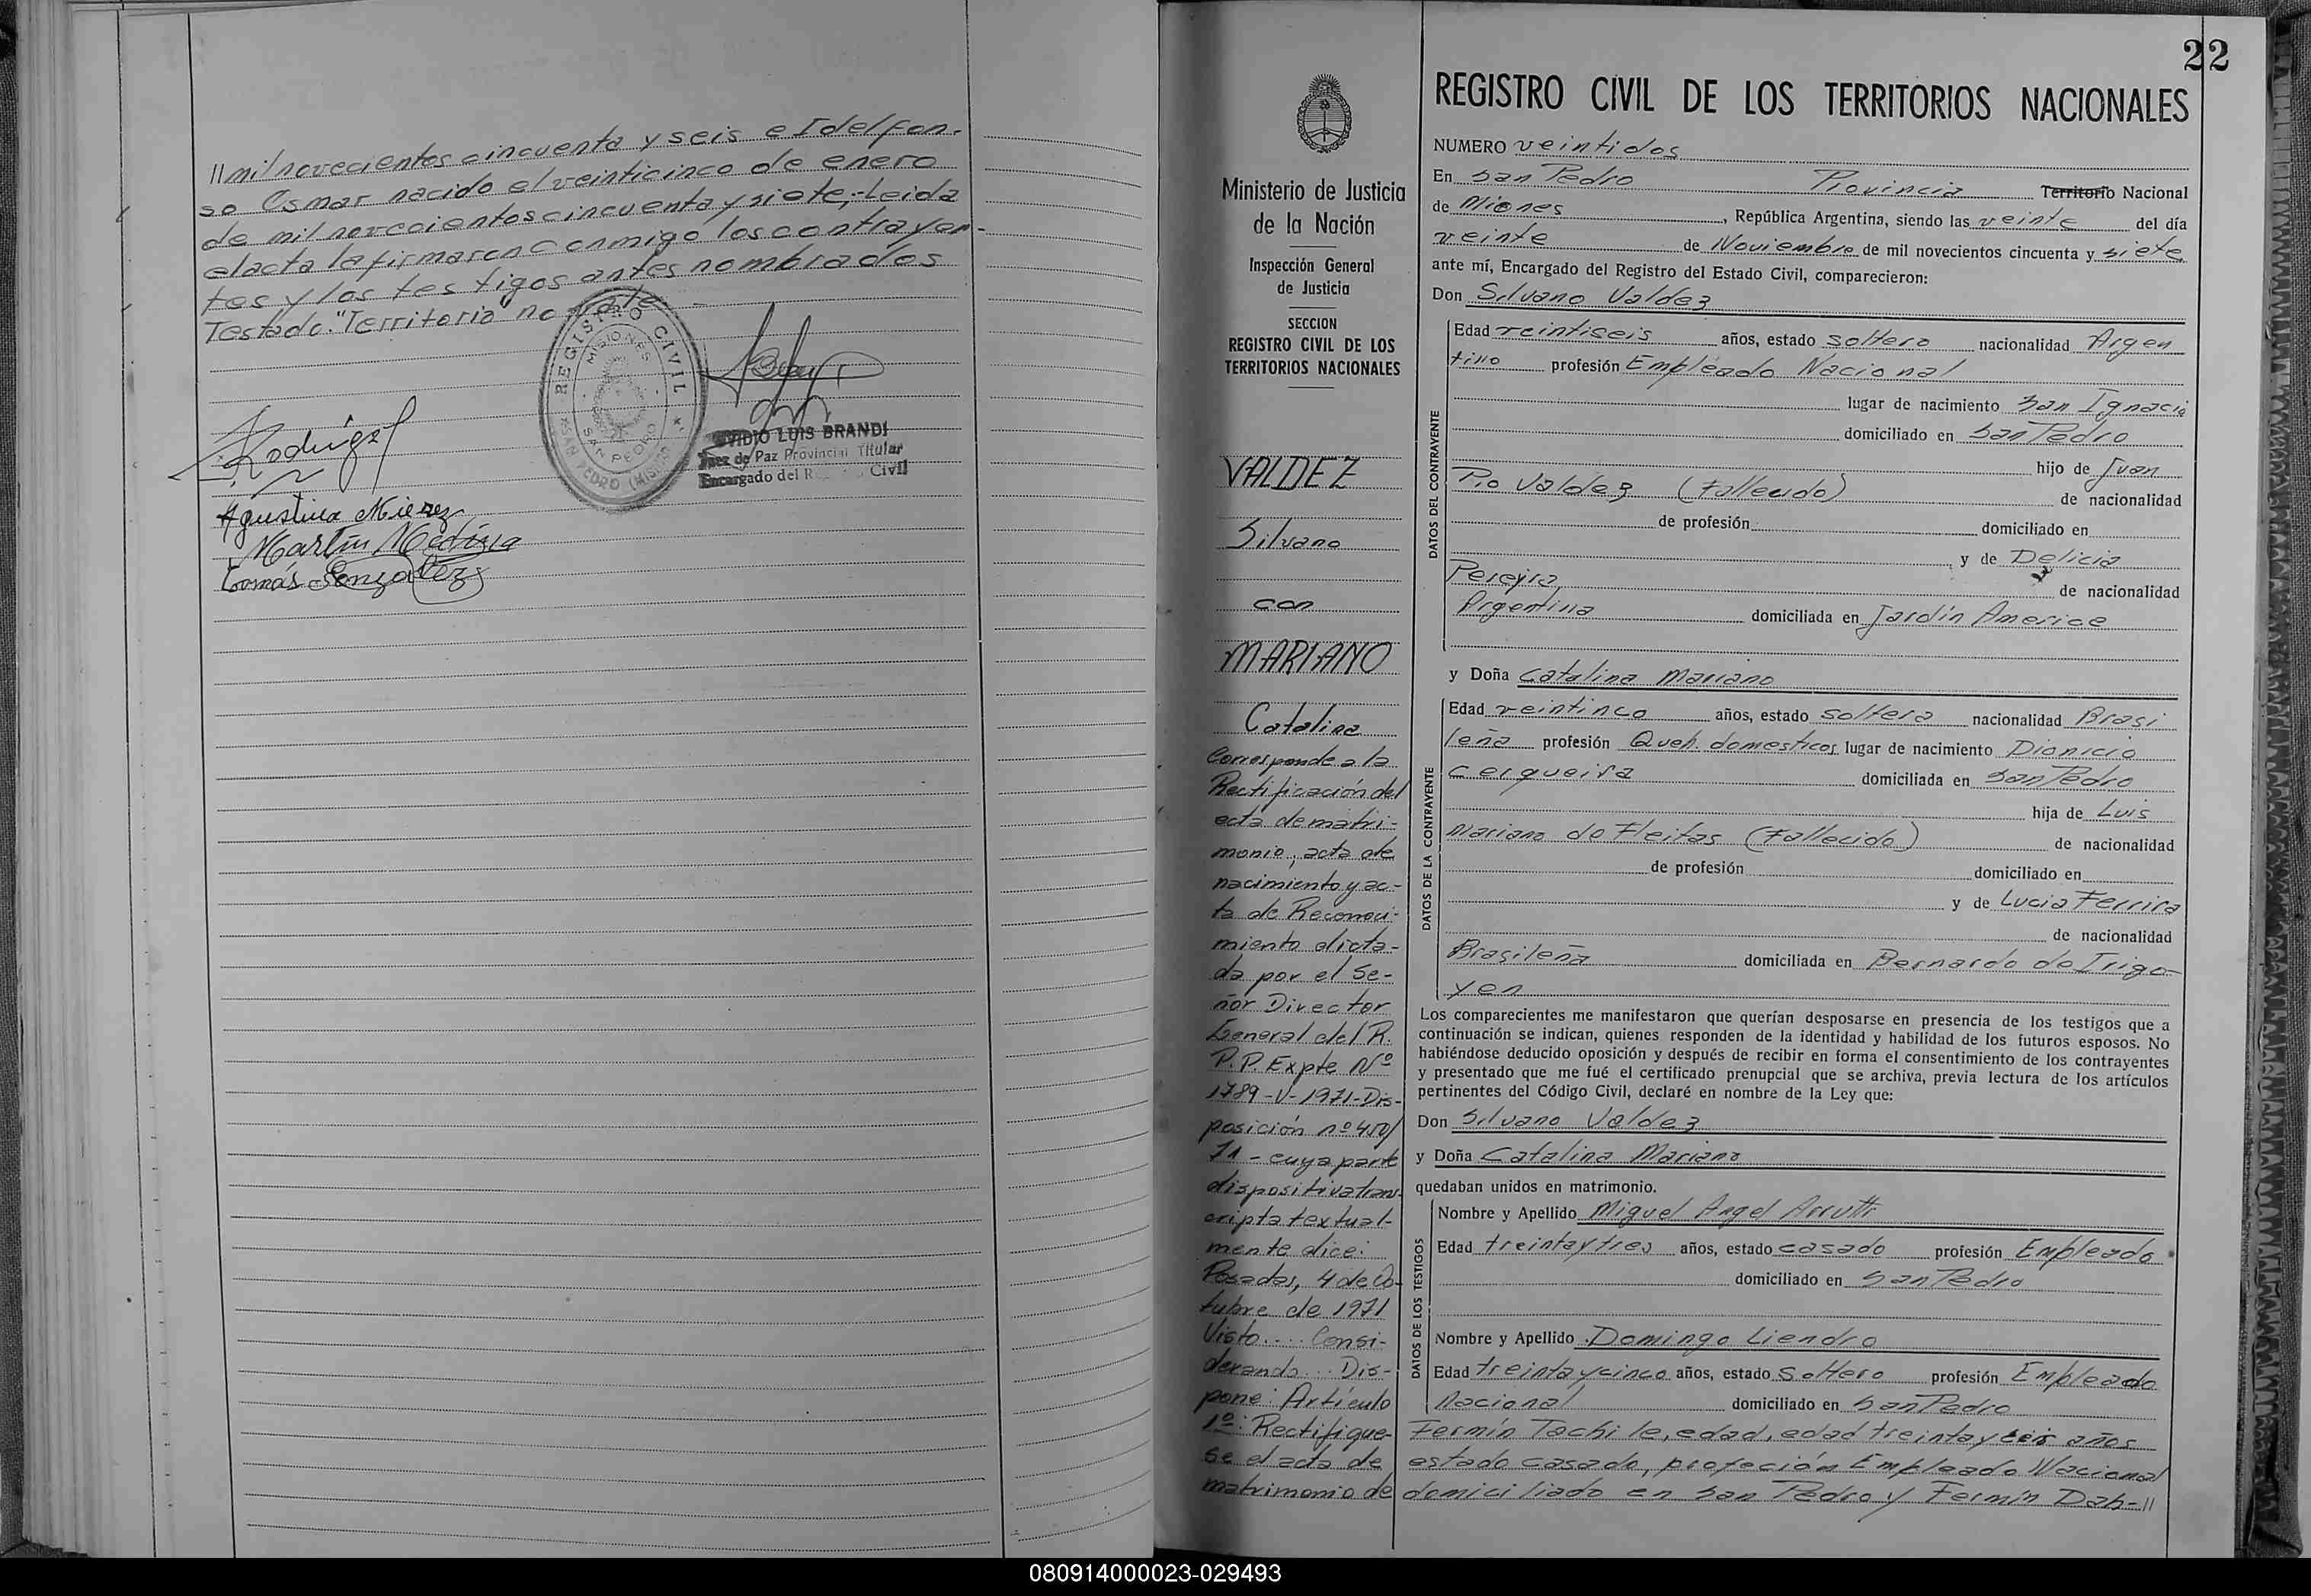 // mil novecientos cincuenta y seis e Idelfon-
so Osmar nacido el veinticinco de enero
de mil novecientos cincuenta y siete,-Leida
el acta la firmaron conmigo los contrayen-
tes y los testigos antes nombrados
Testado."Territorio" no vale
REGISTRO CIVIL
MISIONES
SAN PEDRO
SAN PEDRO (MISIO
OVIDIO LUIS BRANDI
Juez de Paz Provincial Titular
Encargado del R Civil
Agustina Mierez
Martín Medina
Tomás Gonzalez
22
Ministerio de Justicia
de la Nación
Inspección General
de Justicia
SECCION
REGISTRO CIVIL DE LOS
TERRITORIOS NACIONALES
VALDEZ
Silvano
con
MARIANO
Catalina
Corresponde a la
Rectificación del
acta de matri-
monio, acta de
nacimiento y ac-
ta de Reconoci-
miento dicta-
da por el Se-
ñor Director
General del R.
P.P. Expte Nº
1789-V-1971-Dis-
posición nº 450/
71 - cuya parte
dispositiva trans-
cripta textual-
mente dice:
Posadas, 4 de Oc-
tubre de 1971
Visto.... Consi-
derando... Dis-
pone: Artículo
1º: Rectifique-
se el acta de
matrimonio de
REGISTRO CIVIL DE LOS TERRITORIOS NACIONALES
NUMERO veintidos
En San Pedro Provincia Territorio Nacional
de Miones, República Argentina, siendo las veinte del día
veinte de Noviembre de mil novecientos cincuenta y siete
ante mí, Encargado del Registro del Estado Civil, comparecieron:
Don Silvano Valdez
DATOS DEL CONTRAYENTE
Edad veintiseis años, estado soltero nacionalidad Argen
tino profesión Empleado Nacional
lugar de nacimiento San Ignacio
domiciliado en San Pedro
hijo de Juan
Pio Valdez (Fallecido) de nacionalidad
de profesión domiciliado en
y de Delicia
Pereyra de nacionalidad
Argentina domiciliada en Jardín America
y Doña Catalina Mariano
DATOS DE LA CONTRAYENTE
Edad veintinco años, estado soltera nacionalidad Brasi
leña profesión Queh. domesticos lugar de nacimiento Dionicio
Cerqueira domiciliada en San Pedro
hija de Luis
Mariano de Fleitas (Fallecido) de nacionalidad
de profesión domiciliado en
y de Lucia Ferrira
de nacionalidad
Brasileña domiciliada en Bernardo de Irigo-
yen
Los comparecientes me manifestaron que querían desposarse en presencia de los testigos que a
continuación se indican, quienes responden de la identidad y habilidad de los futuros esposos. No
habiéndose deducido oposición y después de recibir en forma el consentimiento de los contrayentes
y presentado que me fué el certificado prenupcial que se archiva, previa lectura de los artículos
pertinentes del Código Civil, declaré en nombre de la Ley que:
Don Silvano Valdez
y Doña Catalina Mariano
quedaban unidos en matrimonio.
DATOS DE LOS TESTIGOS
Nombre y Apellido Miguel Angel
Edad treinta y tres años, estado casado profesión Empleado
domiciliado en San Pedro
Nombre y Apellido Domingo Liendro
Edad treinta y cinco años, estado soltero profesión Empleado
Nacional domiciliado en San Pedro
Fermín Tachile, edad, edad treinta y seis años
estado casado, profeción Empleado Nacional
domiciliado en San Pedro y Fermín Dab-//
080914000023-029493